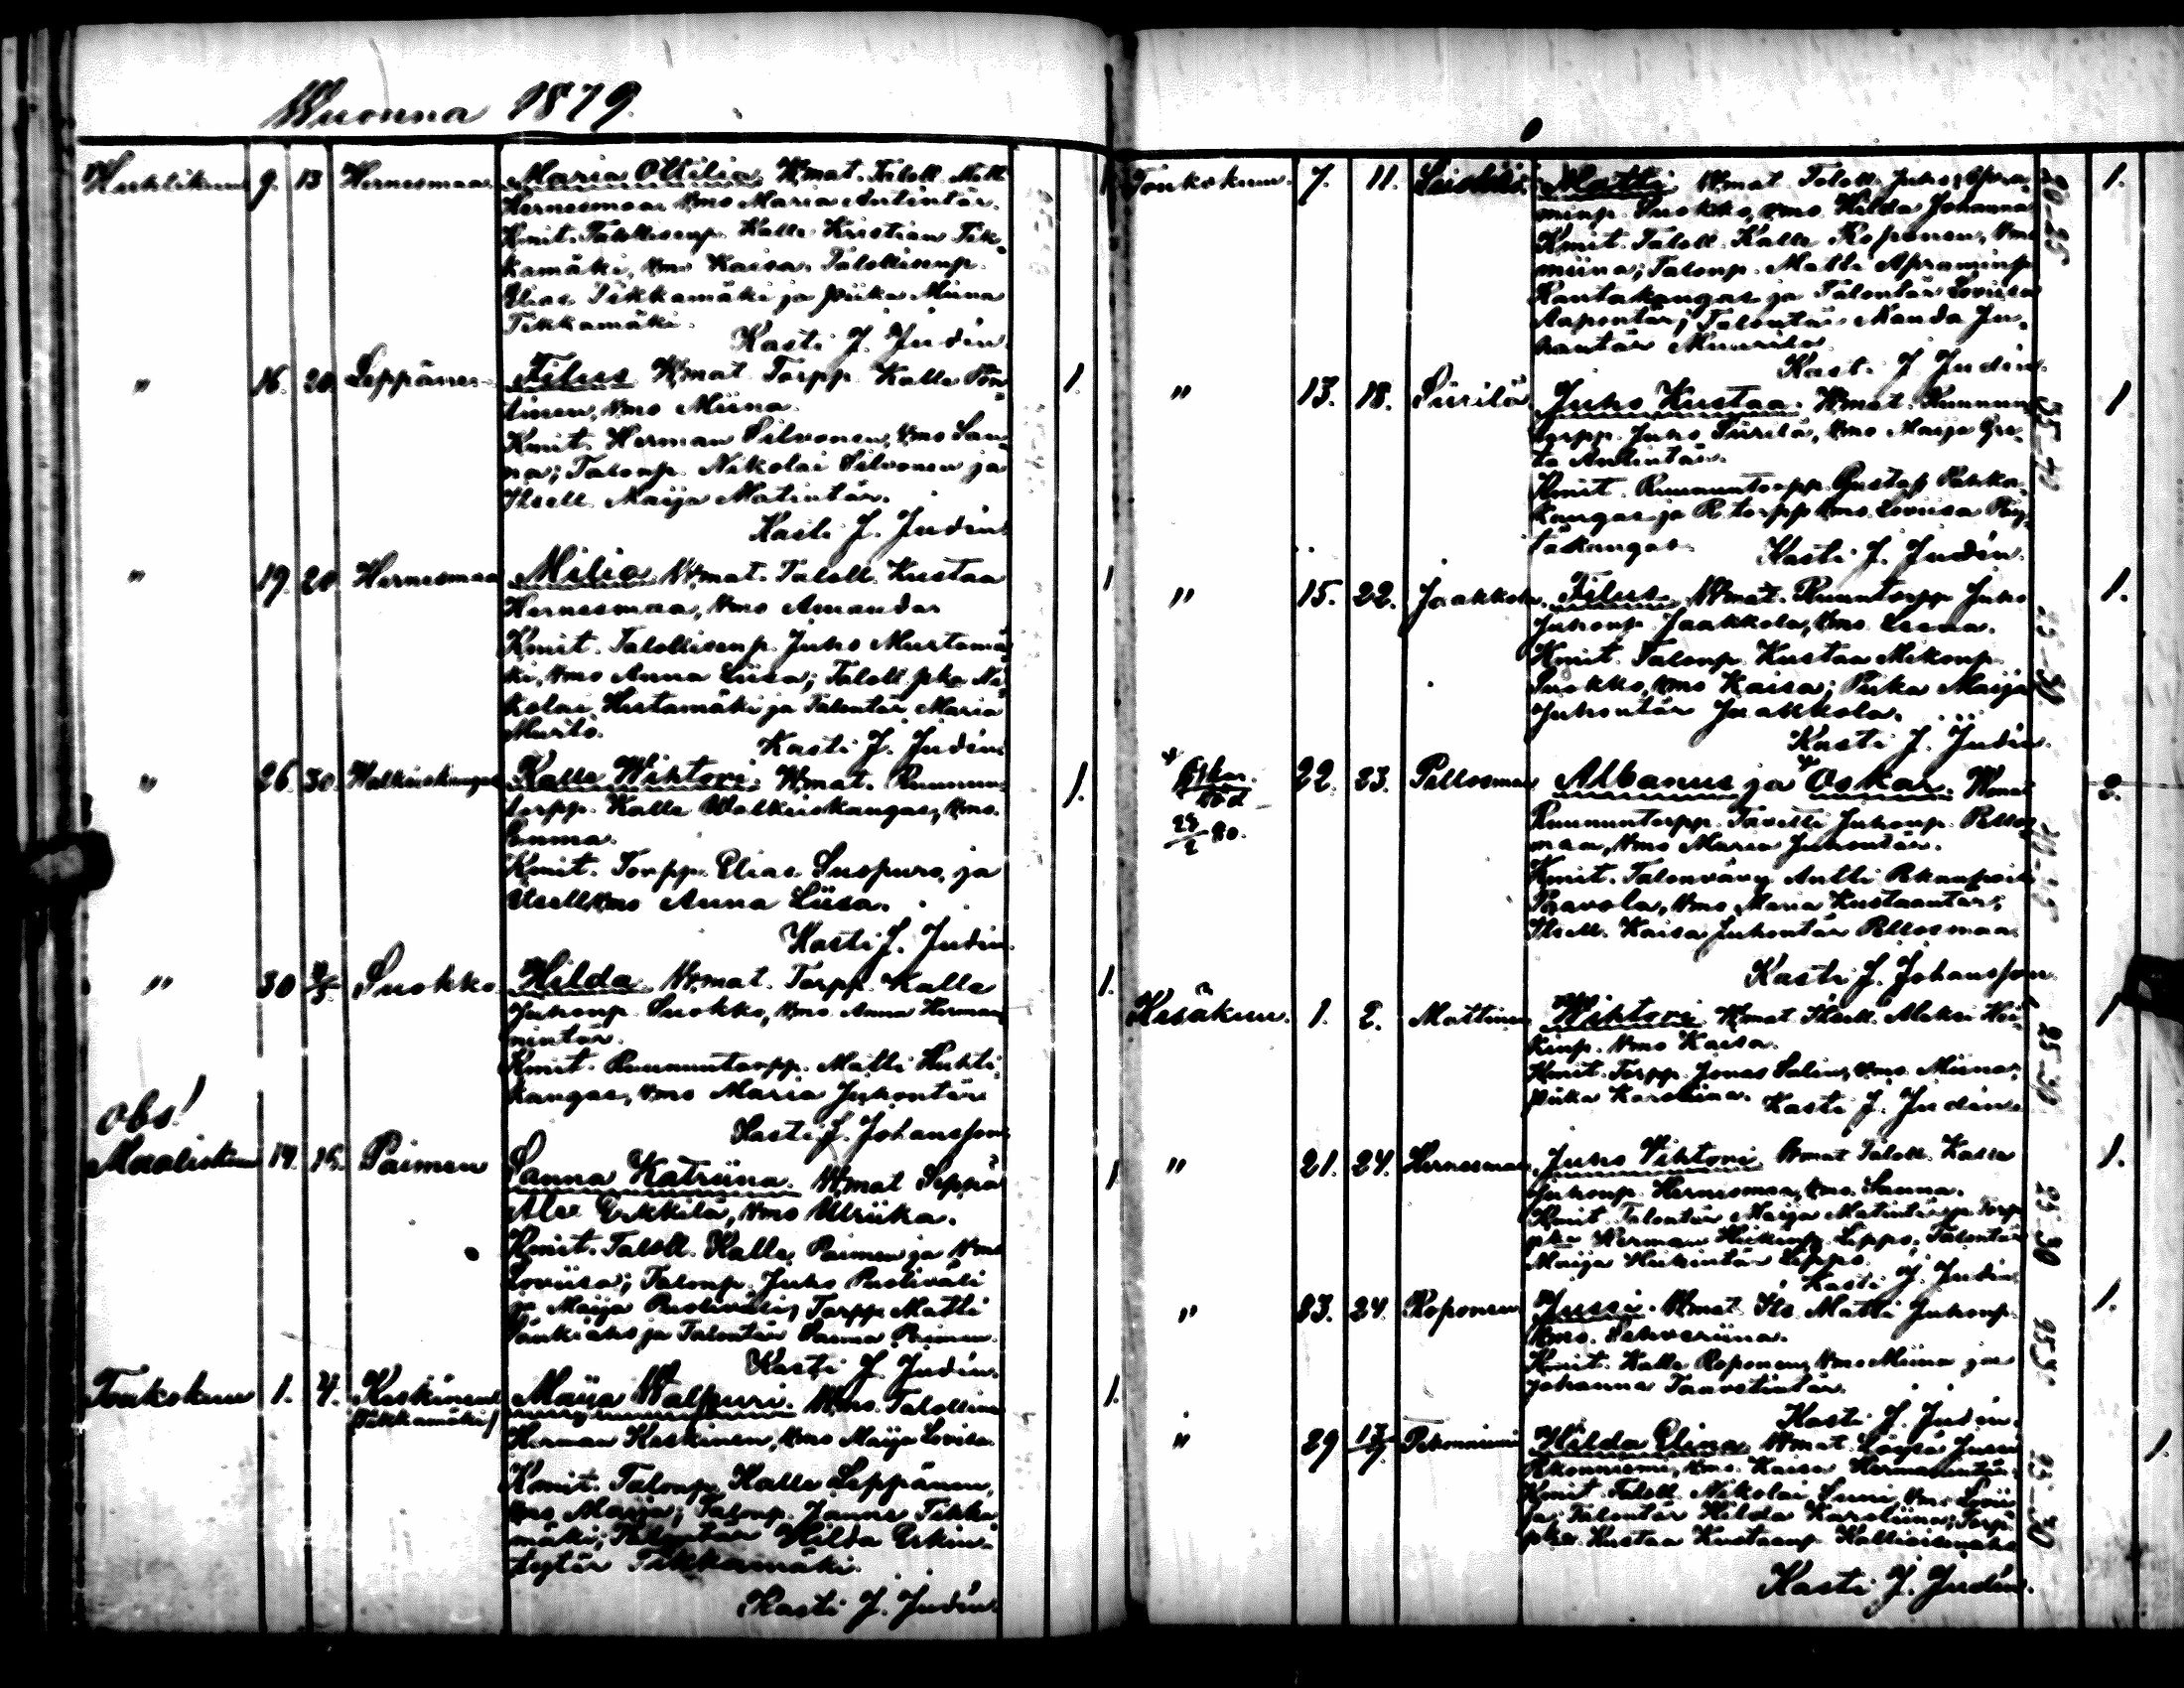 Wuonna 1879.
Huhtikuu 9. 13 Hernesmaa Maria Ottilia. Wmat. Taloll. Matti
Hernesmaa, Vmo Maria Antintär.
Kmit. Talollisenp. Kalle Kristian Tik-
kamäki, Vmo Kaisa. Talollisenp.
Elias Tikkamäki ja piika Miina
Tikkamäki.
Kasti J. Judin
" 16. 20. Leppänen Filus Wmat. Torpp. Kalle
tinen, Vmo Miina.
Kmit. Herman Silvonen, Vmo San-
na; Talonp. Nikolai Silvonen ja
Itsell. Maija Matintär.
Kasti J. Judin
1.
" 19. 20 Hernesmaa Milia Wmat. Taloll. Kustaa
Hernesmaa, Vmo Amanda
Kmit. Talollisenp. Juho Murtomä-
ki, Vmo Anna Liisa; Taloll. pka Ni-
kolai Hirtamäki ja Talontär Maria
Murto.
Kasti J. Judin
1
" 26. 30. Walkiaskangas Kalle Wihtori. Wmat. Ruunun-
torpp. Kalle Walkiaskangas, Vmo.
Emma.
Kmit. Torpp. Elias Suopuro, ja
Itsell. Vmo Anna Liisa.
Kasti J. Judin
1.
" 30 Suokko Hilda Wmat. Torpp. Kalle
Juhonp. Suokko, Vmo Anna Herman-
nintär.
Kmit. Ruununtorpp. Matti Huhti-
kangas, Vmo Maria Juhontär
Kasti J. Johansson
1.
obs!
Maalisku 14. 16. Paimen Sanna Katriina. Wmat Seppä
Alex Erkkilä, Vmo Ulriika.
Kmit. Taloll. Kalle Paimen ja Vmo
Loviisa; Talonp. Juho Puoliväli
ja Maija Puoliväli, Torpp. Matti
ja Talontär Sanna Paimen.
Kasti J. Judin.
1
Toukokuu 1. 4. Keskinen Maija Walpuri. Wmo. Talollinen
(Tikkamäki) Herman Keskinen, Vmo Maija Lovisa
Kmit. Talonp. Kalle Leppänen,
Vmo Maija; Talonp. Janne Tikka-
mäki; Talontär Hilda Erkin-
tytär Tikkamäki.
Kasti J. Judin.
1.
Toukokuu. 7. 11. Suokko. Matti Wmat. Taloll. Juho Apra-
minp. Suokko, Vmo Hilda Johanna
Kmit. Taloll. Kalle Koponen, Vmo
miina; Talonp. Matti Apraminp.
Rantakangas ja Talontär Loviisa
Aapontär; Talontär Manda Ju-
hantär
Kasti J. Judin.
1.
" 13. 18. Siirilä Juho Kustaa. Wmat. Ruunun-
torpp. Juho Siirilä, Vmo Maija Gre-
ta Antintär.
Kmit. Ruununtorpp. Gustaf
kangas ja R. torpp Vmo. Loviisa Pöy-
täkangas.
Kasti J. Judin.
1
" 15. 22. Jaakkola Filus. Wmat. Ruuntorpp Juho
Juhonp. Jaakkola, Vmo. Leena.
Kmit. Talonp. Kustaa Mikonp.
Suokko, Vmo Kaisa; Piika Maija
Juhontär Jaakkola.
Kasti J. Judin
1.
22. 23. Pellosmaa Albanus ja Oskar. Wmat
Ruununtorpp. Tavetti Juhonp. Pellos-
maa, Vmo Maria Juhontär.
Kmit. Talonvävy Antti
Paavola, Vmo Maria Kustaantär;
Itsell. Kaisa Juhontär Pellosmaa.
Kasti J. Johansson
2.
Kesäkuu. 1. 2. Mattinen Wihtori Wmat. Itsell. Aleksi Hei-
kinp. Vmo Kaisa.
Kmit. Torpp. Jonas Salin, Vmo. Miina;
piika Karoliina. Kasti J. Judin.
1
" 21. 24. Hernesmaa Juho Wihtori Wmat Taloll. Kalle
Juhonp. Hernesmaa, Vmo. Sanna.
Kmit. Talontär Maija Matintär ja Torp
pka Herman Heikinp. Leppo, Talontär
Maija Heikintär Leppo.
Kasti J. Judin
1.
" 23. 24. Koponen Jussi. Wmat. Its. Matti Juhonp.
Vmo. Sehveriina.
Kmit. Kalle Koponen, Vmo Miina ja
Johanna Taavetintär.
Kasti J. Judin.
1.
" 29 Pekonniemi Hilda Elina Wmat. Jussi
Pekonniemi, Vmo. Kaisa Hermannintär.
Kmit. Taloll. Nikolai Suni, Vmo Lovii-
sa; Talontär Hilda Karoliina; Torp
pka. Kustaa Kustaanp.
Kasti J. Judin.
1.